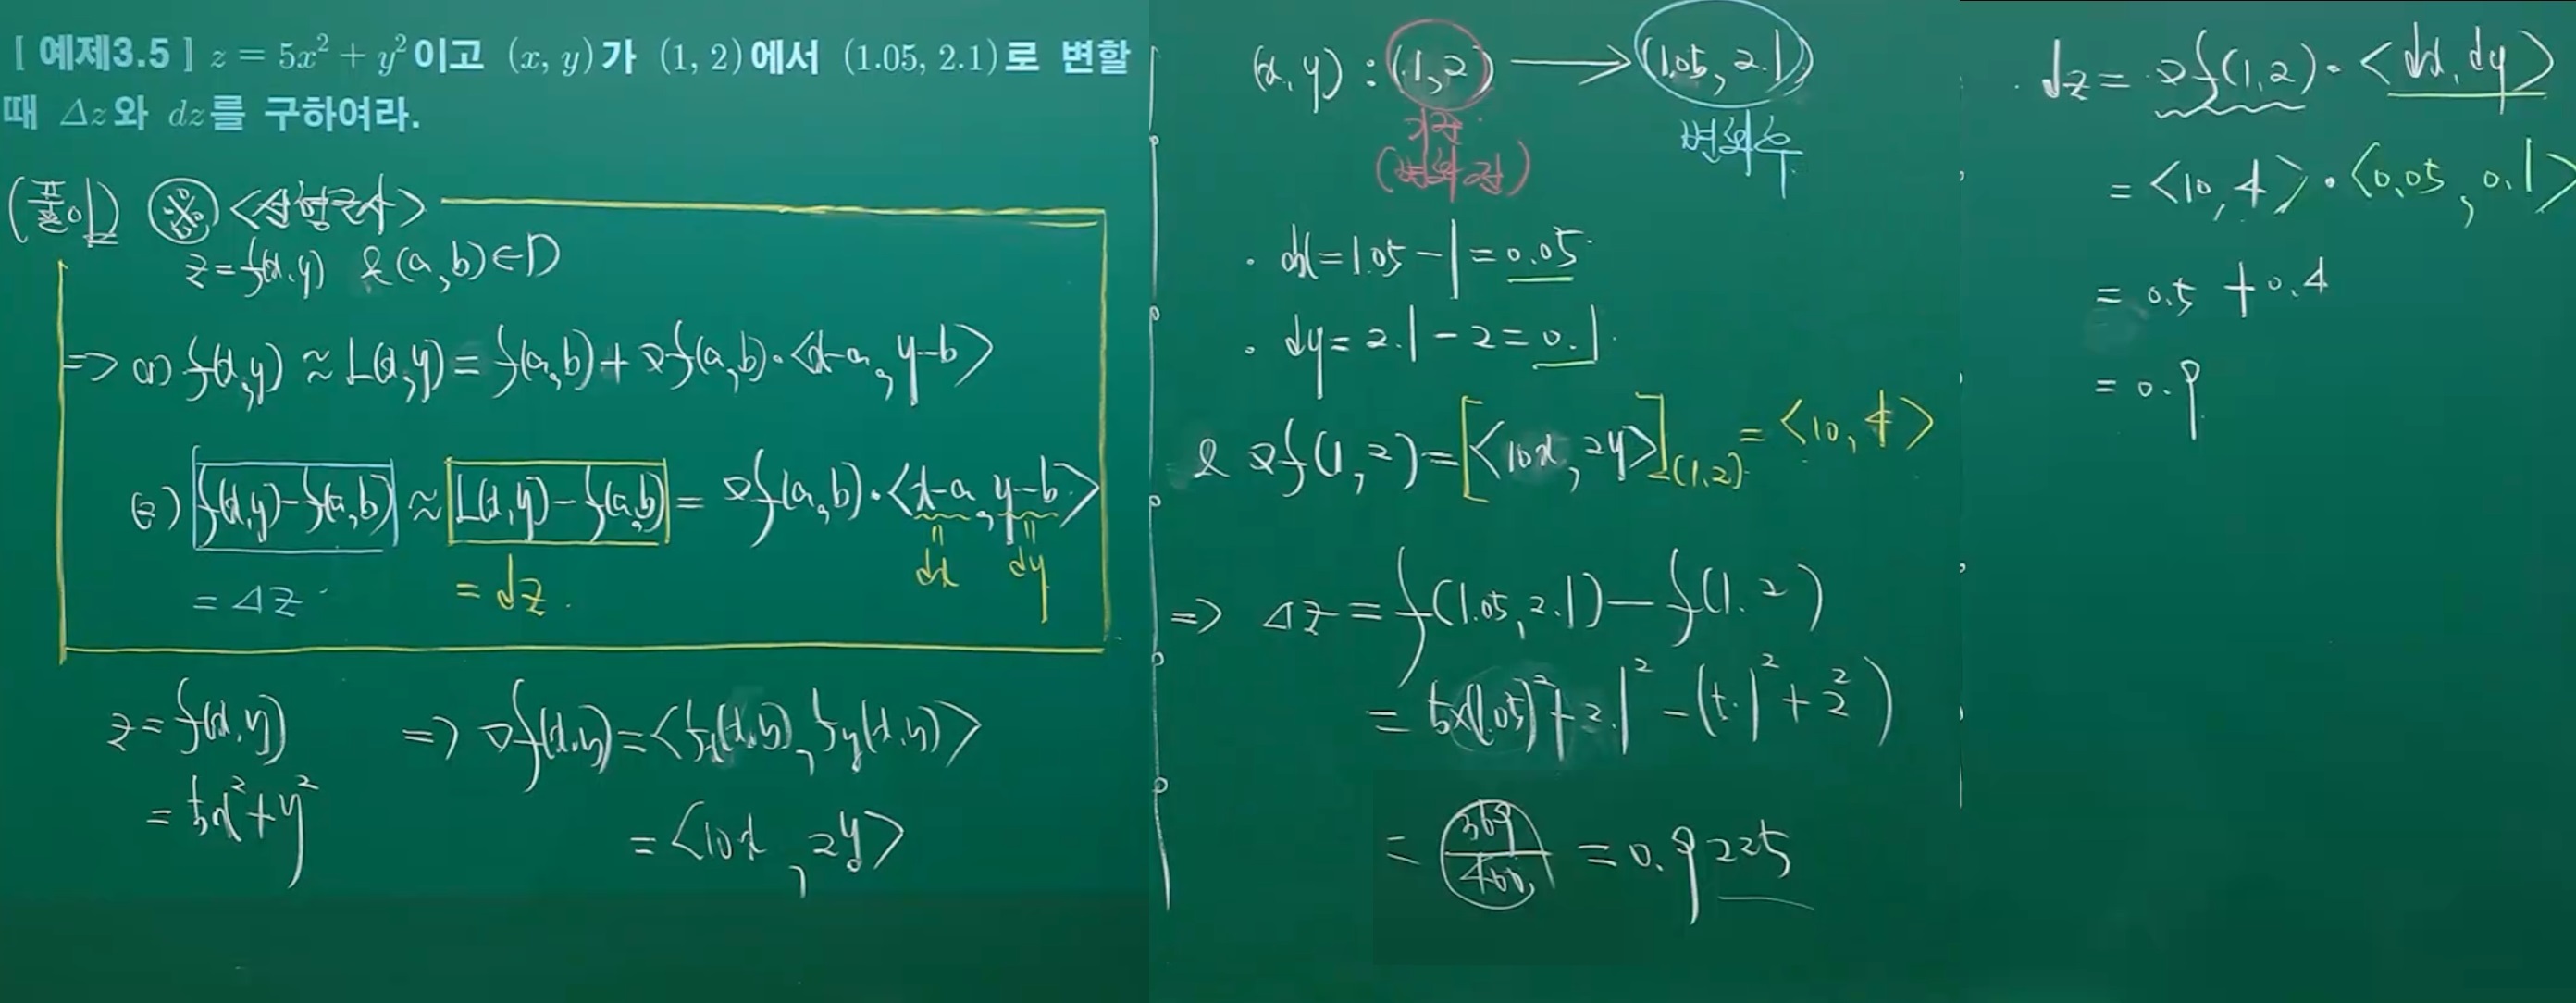 [ 예제3.5 ] z = 5x² + y² 이고 (x, y)가 (1, 2)에서 (1.05, 2.1)로 변할
때 Δz와 dz를 구하여라.
(풀이) ※ <선형근사>
z=f(x,y) & (a,b)∈D
=> (1) f(x,y) ≈ L(x,y) = f(a,b) + ∇f(a,b)·<x-a, y-b>
(2) f(x,y)-f(a,b) ≈ L(x,y)-f(a,b) = ∇f(a,b)·<x-a, y-b>
= Δz = dz
dx dy
z = f(x,y) => ∇f(x,y) = <fx(x,y), fy(x,y)>
= 5x²+y²
= <10x, 2y>
(x,y) : (1,2) → (1.05, 2.1)
변화후
· dx = 1.05 - 1 = 0.05
· dy = 2.1 - 2 = 0.1
& ∇f(1,2) = [<10x, 2y>](1,2) = <10, 4>
=> Δz = f(1.05, 2.1) - f(1.2)
= 5×(1.05)² + 2.1² - (5·1² + 2²)
= 369/400 = 0.9225
· dz = ∇f(1,2) · <dx, dy>
= <10, 4> · <0.05, 0.1>
= 0.5 + 0.4
= 0.9